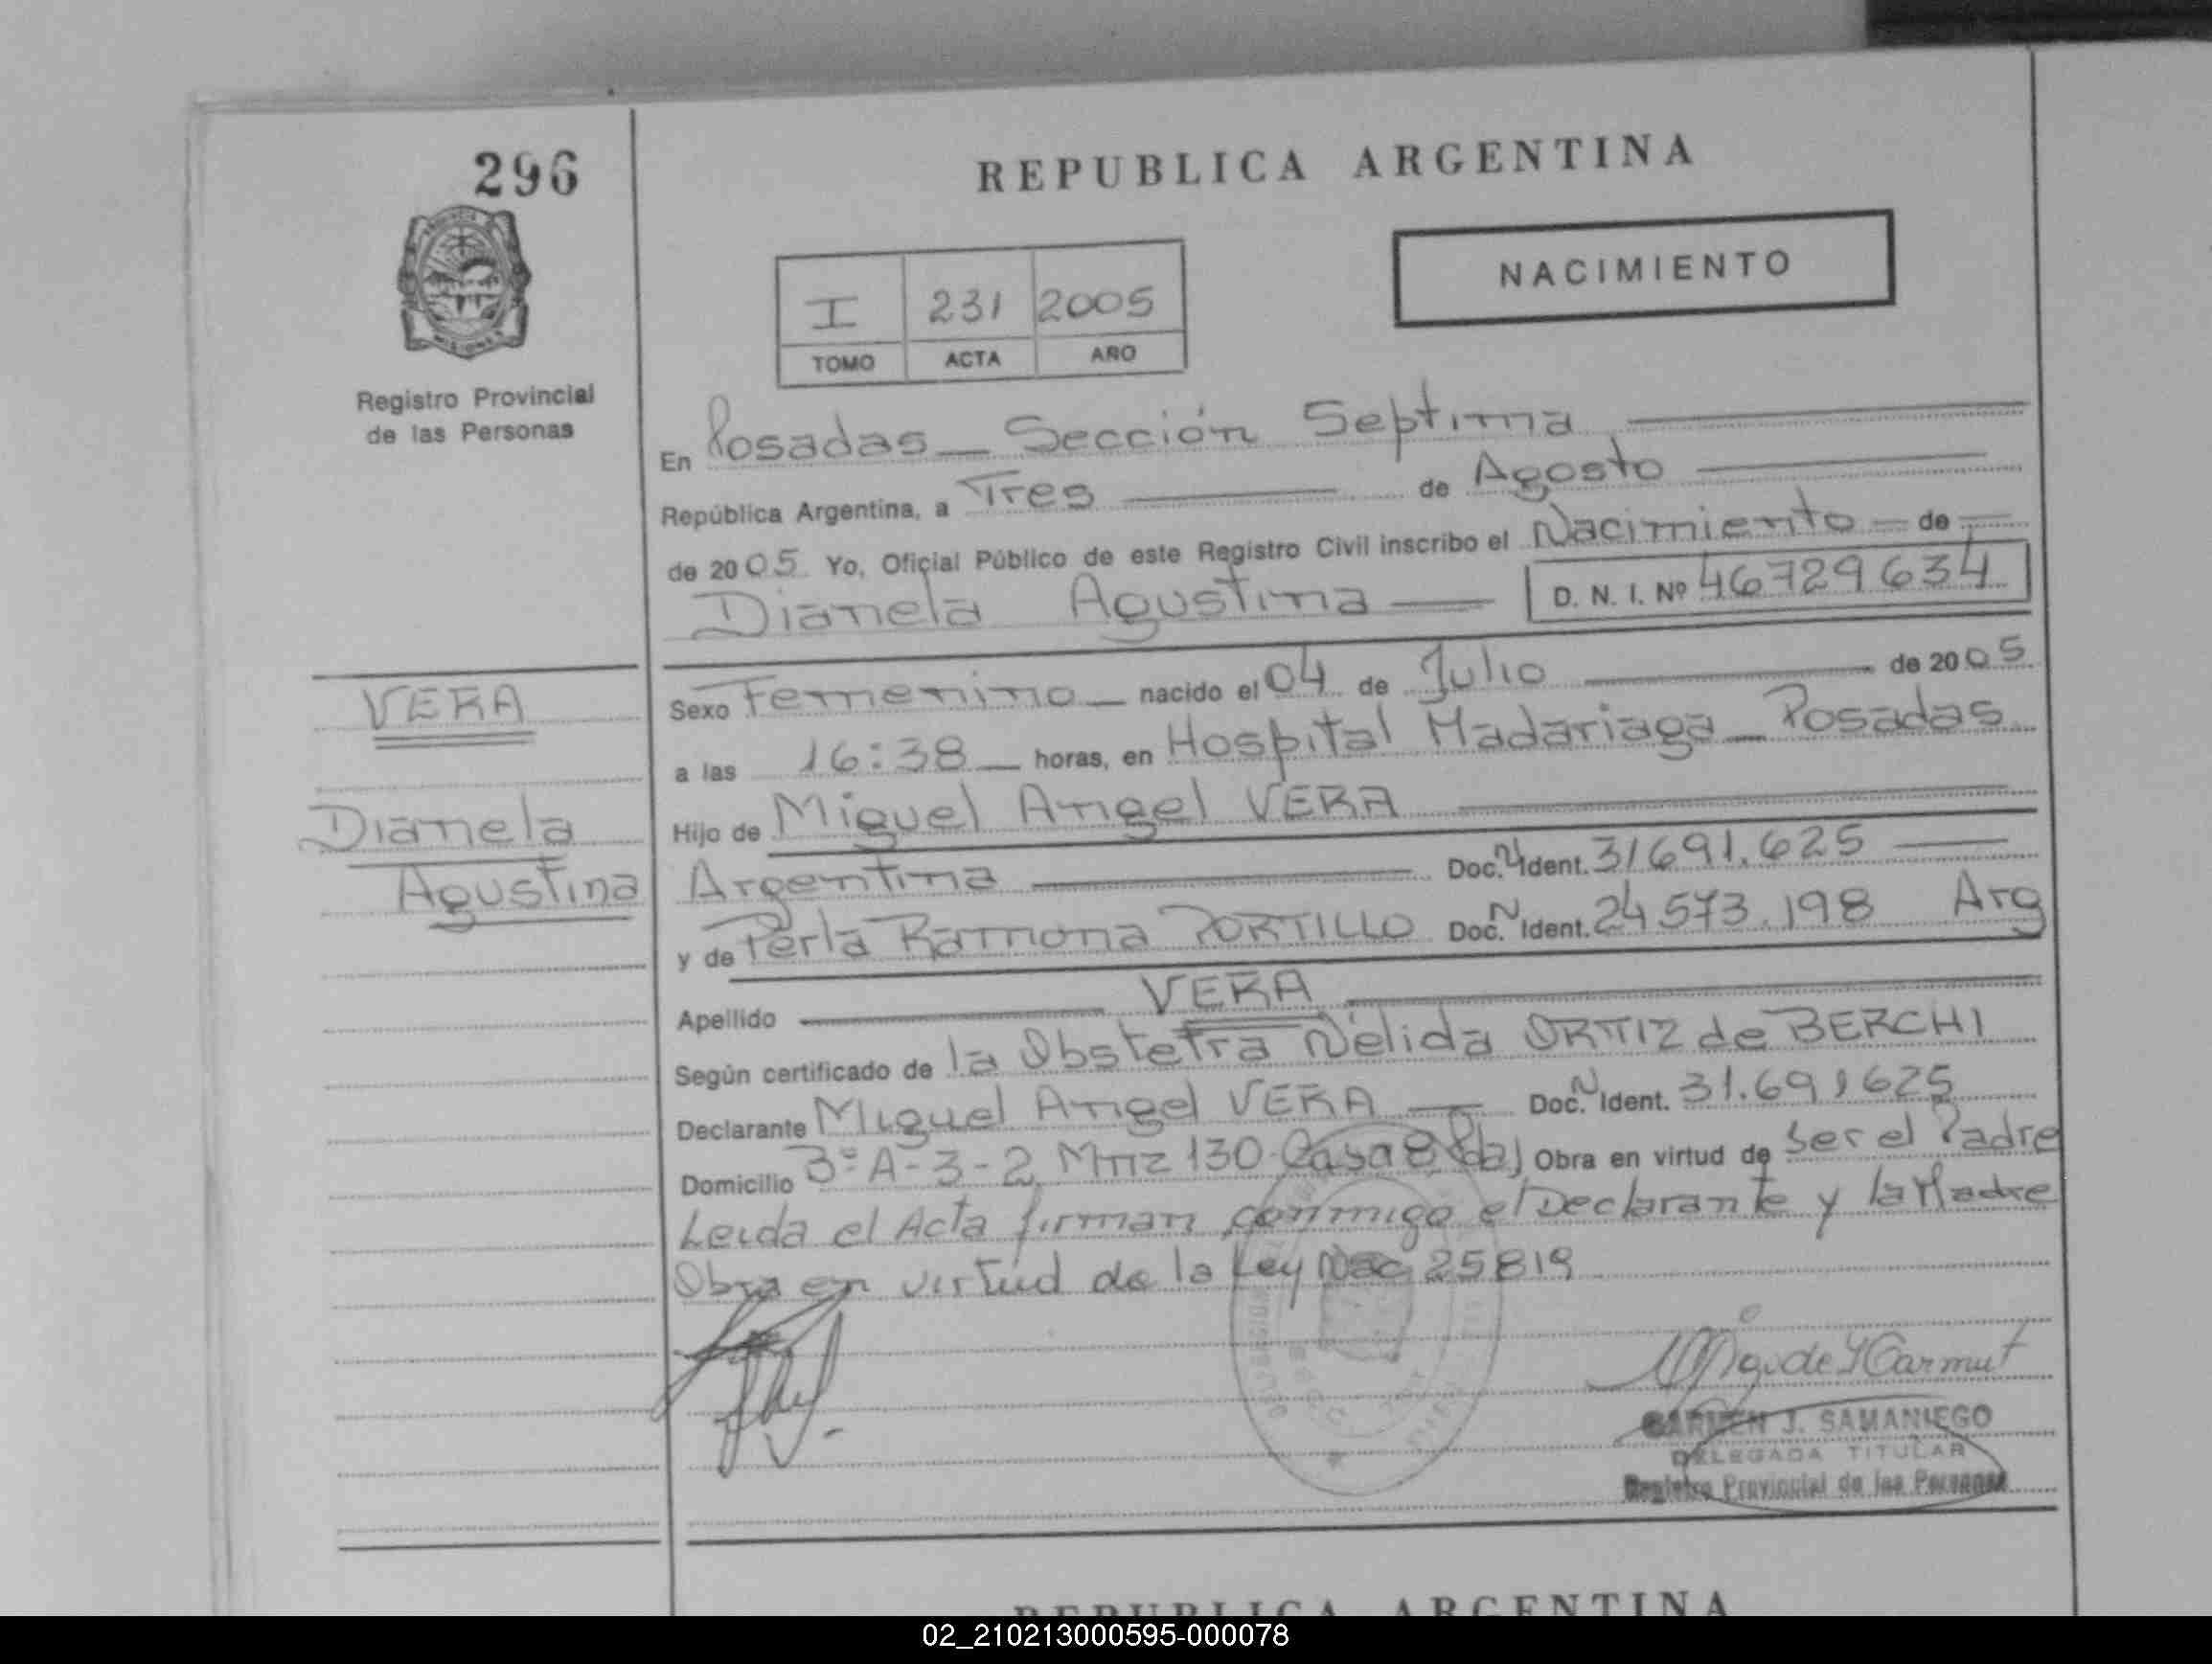 296
REPUBLICA ARGENTINA
NACIMIENTO
I 231 2005
TOMO ACTA AÑO
Registro Provincial
de las Personas
En Posadas - Sección Septima
República Argentina, a Tres de Agosto
de 2005 Yo, Oficial Público de este Registro Civil inscribo el Nacimiento de
Dianela Agustina D. N. I. Nº 46729634
VERA
Dianela
Agustina
Sexo Femenino nacido el 04 de Julio de 2005
a las 16:38 horas, en Hospital Madariaga - Posadas
Hijo de Miguel Angel VERA
Argentina Doc. N Ident. 31691.625
y de Perla Ramona PORTILLO Doc. N Ident. 24573.198 Arg
Apellido VERA
Según certificado de la Obstetra Nélida ORTIZ de BERCHI
Declarante Miguel Angel VERA Doc. N Ident. 31.691625
Domicilio 3º A-3-2 Mnz 130 Casa 8 Obra en virtud de Ser el Padre
Leida el Acta firman conmigo el Declarante y la Madre
Obra en virtud de la Ley Nac 25819
CARMEN J. SAMANIEGO
DELEGADA TITULAR
Registro Provincial de las Personas
REPUBLICA ARGENTINA
02_210213000595-000078